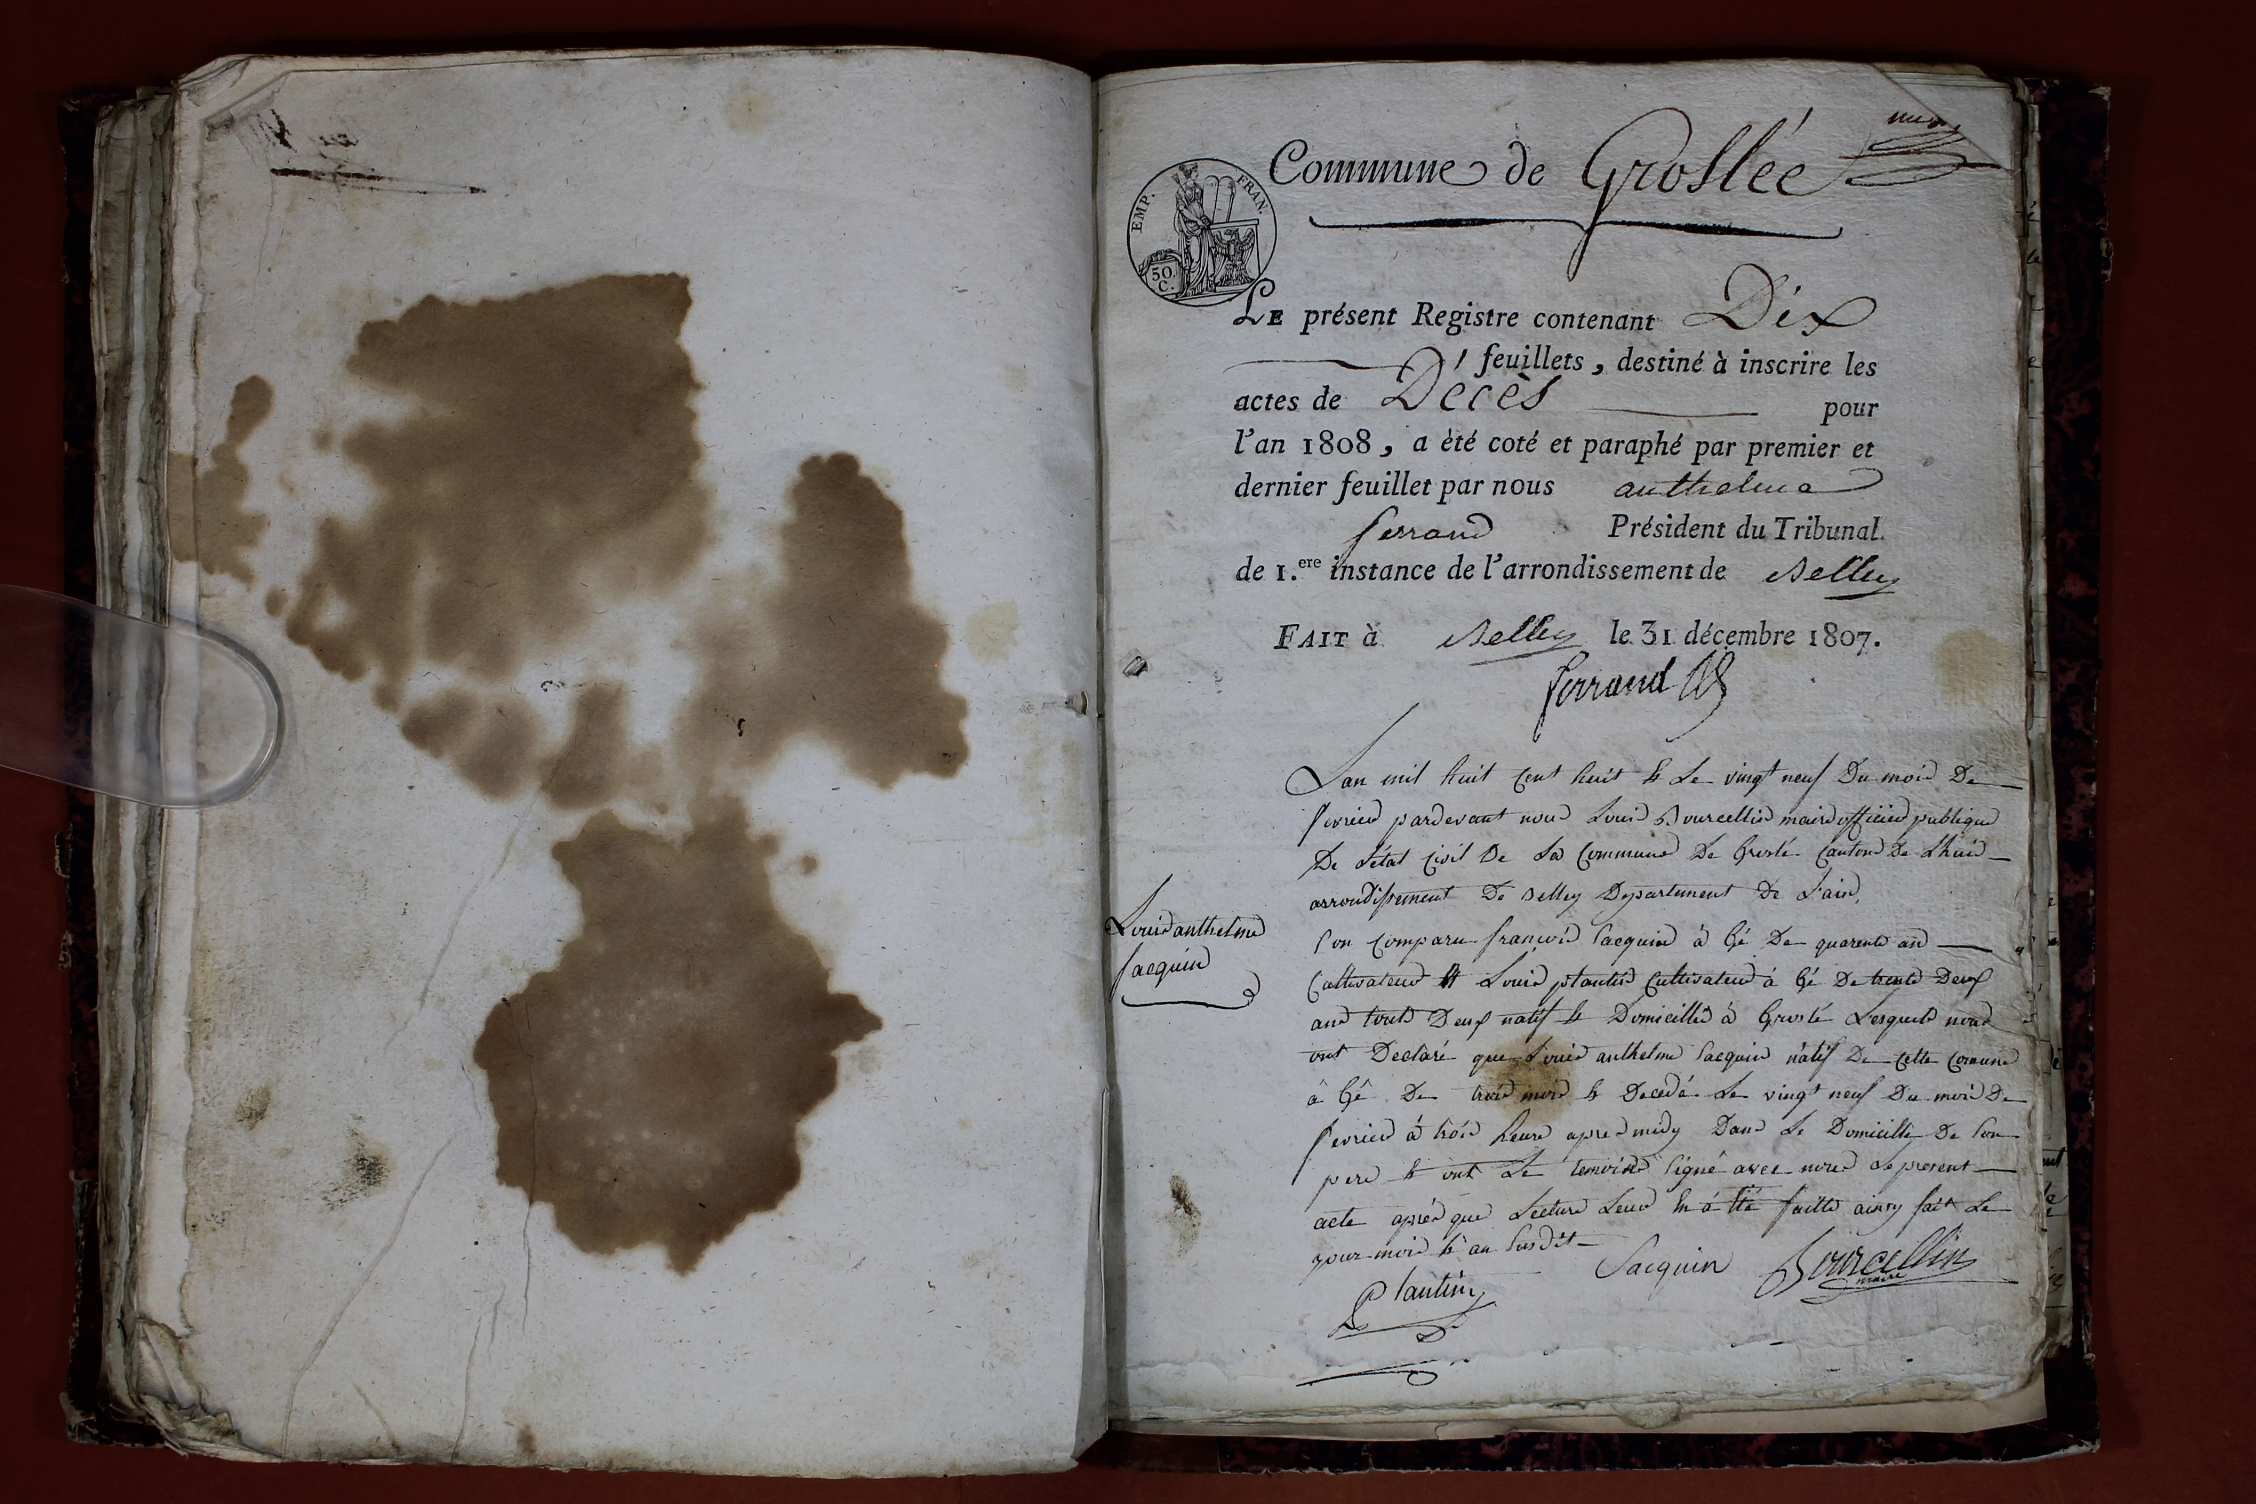 Commune de Groslée
EMP. FRAN.
50. C.
LE présent Registre contenant Dix
feuillets, destiné à inscrire les
actes de Décès pour
l'an 1808, a èté coté et paraphé par premier et
dernier feuillet par nous anthelme
ferrand Président du Tribunal
de 1.ere instance de l'arrondissement de Belley
FAIT à Belley le 31 décembre 1807.
ferrand
Lan mil huit Cent huit & Le vingt neuf Du mois De
fevrier pardevant nous Louis Bourcellin maire officier publique
De Létat Civil De La Commune De Groslé Canton De Lhuis
arrondissement De Belley Departement De Lain
Son Comparu francois Sacquin à Gé De quarente ans
Cultivateur & Louis plantin Cultivateur à Gé De trente Deux
ans touts Deux natif & Domicillés à Groslé Lesquels nous
ont Declaré que Louis anthelme Sacquin natif De Cette Comune
à Gé De trois mois & Decedé Le vingt neuf Du mois De
fevrier à trois heure apres midy Dans Le Domicille De Son
pere & ont Le temoins Signé avec nous Le present
acte après que Lecture Leur En à Eté faitte ainsy fait Le
jour mois & an Susdit
Louis anthelme
Sacquin
Sacquin Bourcellin
maire
Plantin